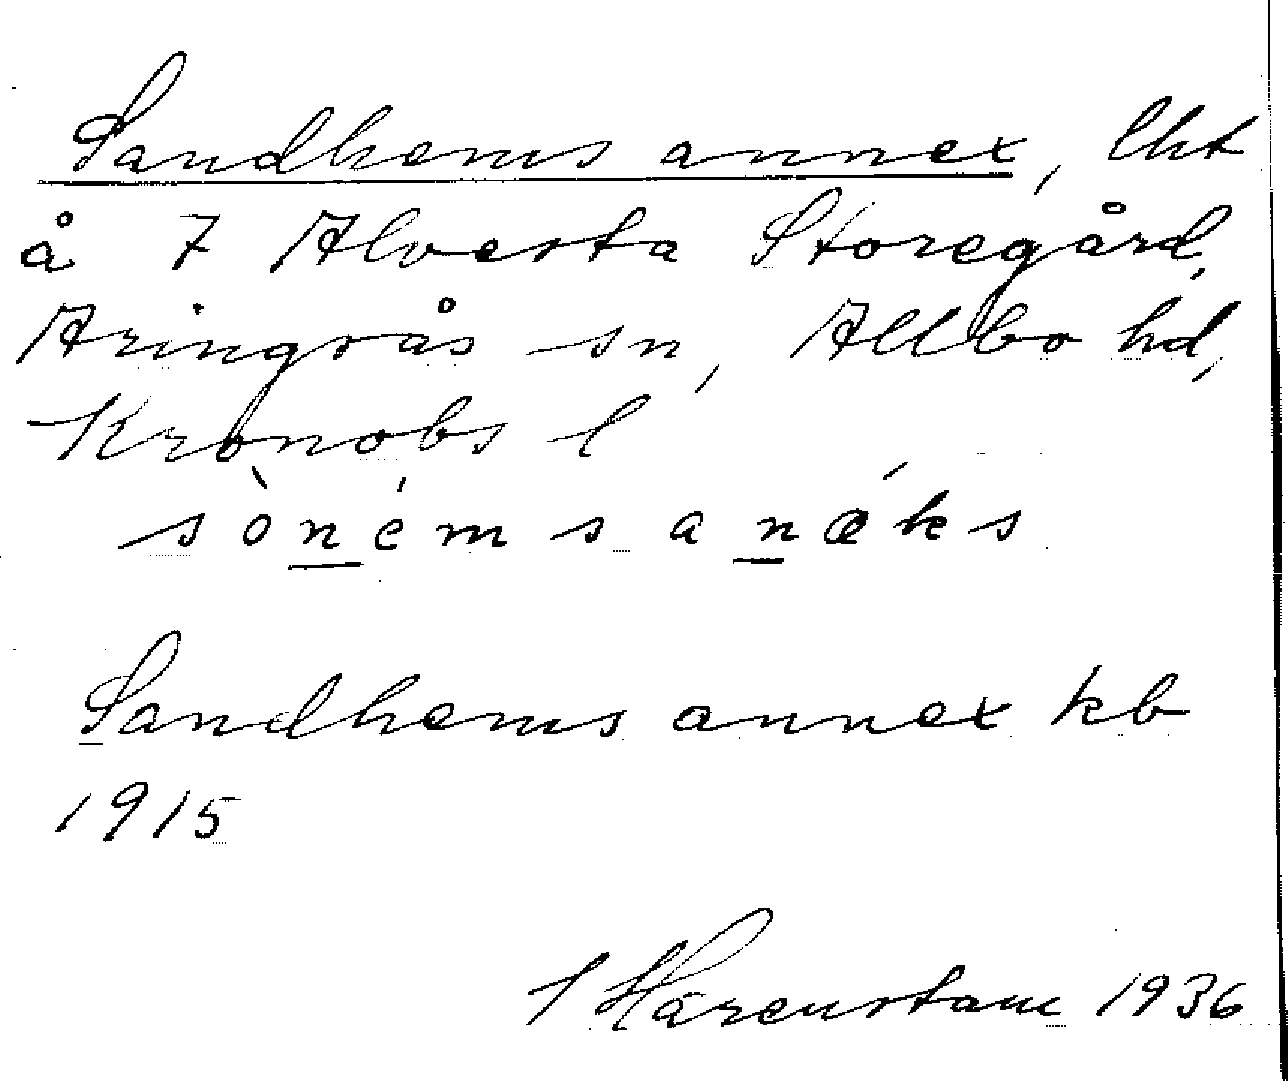 Sandhems annex, lht
å 7 Alvesta Storegård,
Aringsås sn, Allbo hd,
Kronobs l
sònéms anǽks
Sandhems annex kb
1915
J Härenstam 1936